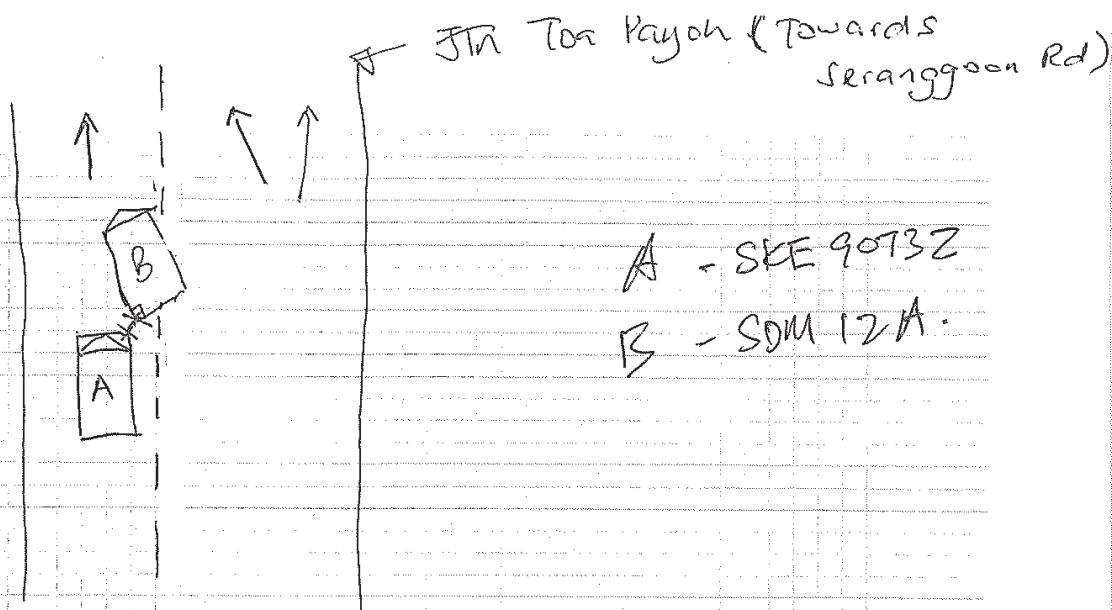 Jln Toa Payoh (Towards
Seranggoon Rd)
B
A
A - SKE 9073Z
B - SDM 12A.